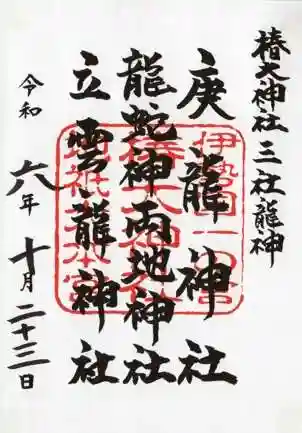 椿大神社 三社龍神
庚龍神社
龍蛇神両地神社
立雲龍神社
令和六年十月二十三日
伊勢国一の宮
椿大神社
地祇大本宮